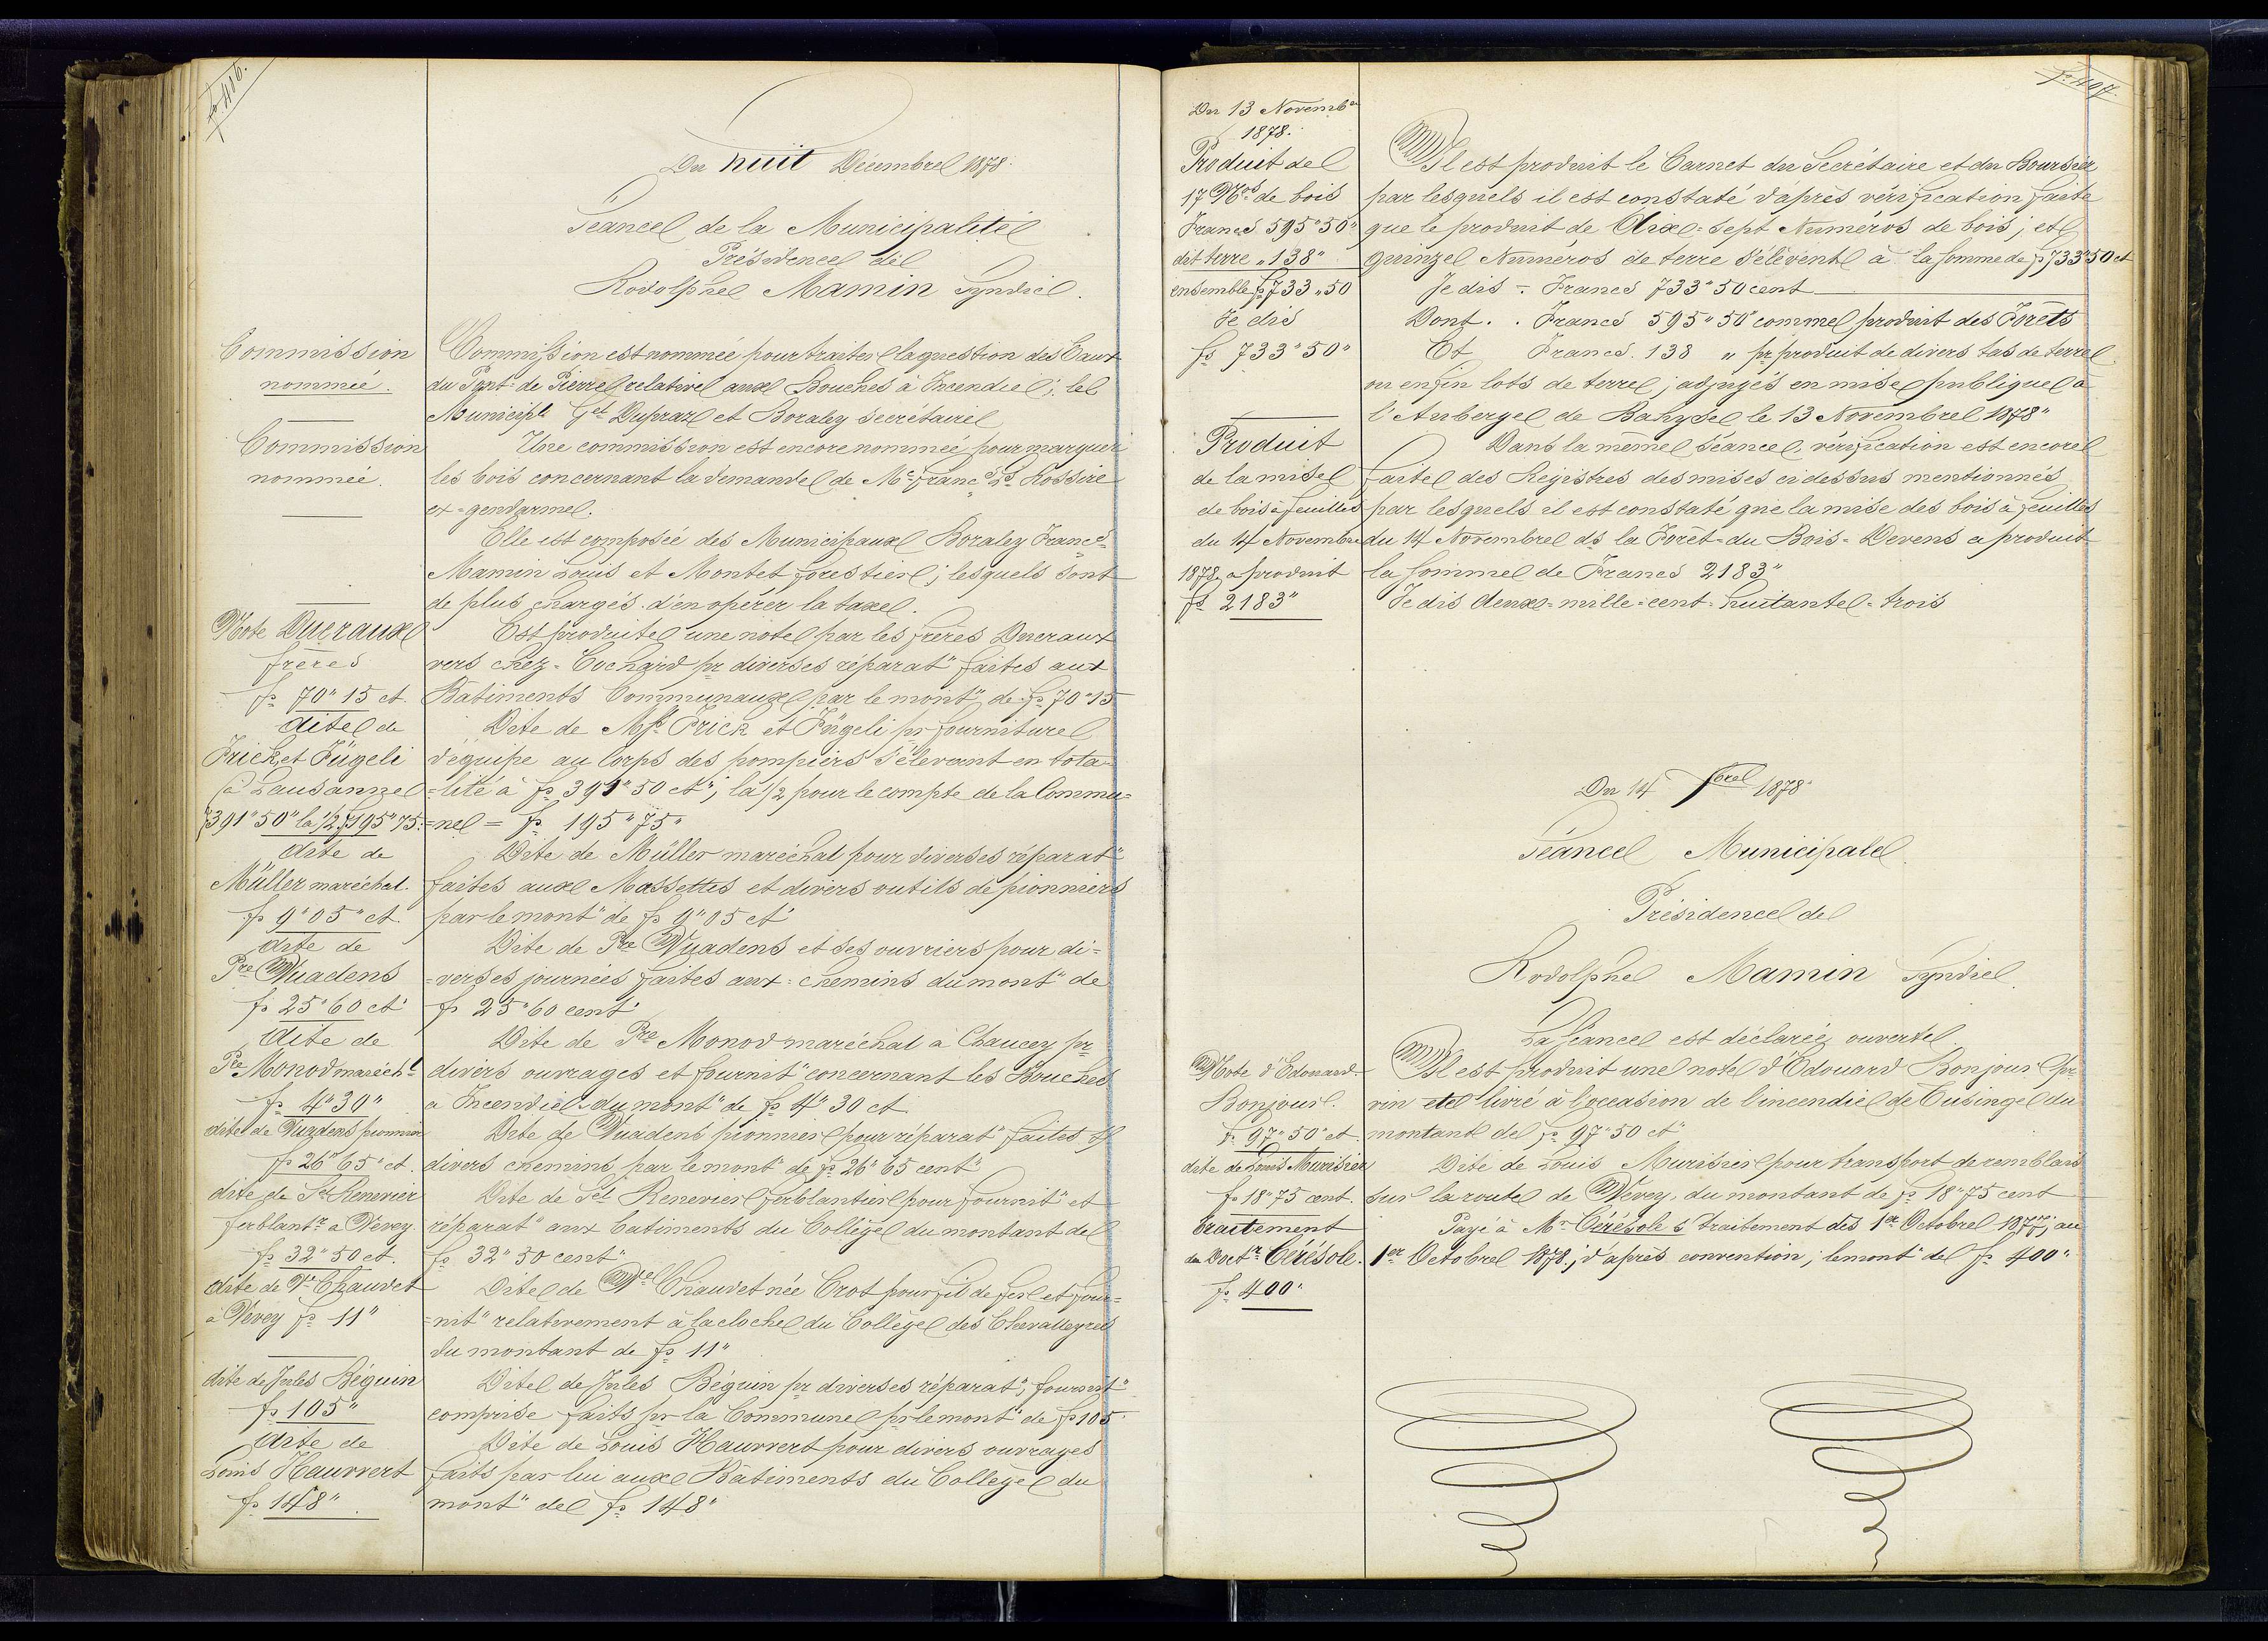 fo 406.
Du huit Décembre 1878.
Séance de la Municipalité
Présidence de
Rodolphe Mamin Syndic.
Commission
nommée.
Commission est nommée pour traiter la question des Eaux
du Pont-de Pierre relative aux Bouches à Incendie; le
Municipl Gel Dupraz et Boraley secrétaire
Commission
nommée.
Une commission est encore nommée pour marquer
les bois concernant la demande de Mr Francs Ls Rossire
ex-gendarme.
Elle est composée des Municipaux Boraley Francs
Mamin Louis et Montet forestier; lesquels sont
de plus chargés d'en opérer la taxe.
Note Ducraux
frères
fs 70" 15 ct.
Est produite une note par les frères Ducraux
vers chez-Cochard pr diverses réparat" faites aux
Bâtiments Communaux par le mont" de fs 70"15
dite de
Frick et Fügeli
à Lausanne
391"50" la 1/2 fs 195"75"
Dite de Mrs Frick et Fügeli pr fourniture
d'équipe au Corps des pompiers s'élevant en tota=
=lité à fs 391"50 ct"; la 1/2 pour le compte de la Commu=
=ne = fs 195"75"
dite de
Müller maréchal.
fs 9"05" ct.
Dite de Müller maréchal pour diverses réparat"
faites aux Massettes et divers outils de pionniers
par le mont" de fs 9"05 ct"
dite de
Pre Vuadens
fs 25"60 ct"
Dite de Pre Vuadens et ses ouvriers pour di=
=verses journées faites aux chemins du mont" de
fs 25"60 cent"
dite de
Pre Monod maréchl
fs 4"30"
Dite de Pre Monod maréchal à Chaucey pr
divers ouvrages et fournit" concernant les Bouches
à Incendie du mont" de fs 4"30 ct
dite de Vuadens pionnier
fs 26"65" ct.
Dite de Vuadens pionnier pour réparat" faites à
divers chemins par le mont" de fs 26"65 cent"
dite de Sl Renevier
ferblantr à Vevey.
fs 32"50 ct.
Dite de Sel Renevier ferblantier pour fournit" et
réparat" aux bâtiments du Collège du montant de
fs 32"50 cent"
dite de Ve Chauvet
à Vevey fs 11"
Dite de Ve Chauvet née Crot pour fil de fer et four=
=nit" relativement à la cloche du Collège des Chevalleyres
du montant de fs 11"
dite de Jules Béguin
fs 105"
Dite de Jules Béguin pr diverses réparat", fournit"
comprise faits pr la Commune pr le mont" de fs 105"
dite de
Louis Hauvvert
fs 148"
Dite de Louis Hauvvert pour divers ouvrages
faits par lui aux Bâtiments du Collège du
mont" de fs 148"
fo 407.
Du 13 Novembre
1878.
Produit de
17 Nos de bois
Francs 595"50"
dit terre "138"
ensemble fs 733"50
Je dis
fs 733"50"
Il est produit le Carnet du Secrétaire et du Boursier
par lesquels il est constaté d'après vérification faite
que le produit de Dix-sept Numéros de bois; et
quinze Numéros de terre s'élèvent à la somme de fs 733"50 ct
Je dis = Francs 733"50 cent
Dont . . Francs 595"50" comme produit des Forêts
Et Francs. 138 " pr produit de divers tas de terre
ou enfin lots de terre; adjugés en mise publique à
l'Auberge de Bahyse le 13 Novembre 1878"
Produit
de la mise
de bois à feuilles
du 14 Novembre
1878 a produit
fs 2183"
Dans la même séance, vérification est encore
faite des Registres des mises ci dessus mentionnés
par lesquels il est constaté que la mise des bois à feuilles
du 14 Novembre ds la Forêt-du Bois-Devens a produit
la somme de Francs 2183"
Je dis deux-mille-cent-huitante-trois
Du 14 Xbre 1878"
Séance Municipale.
Présidence de
Rodolphe Mamin Syndic.
La Séance est déclarée ouverte.
Note d'Edouard
Bonjour.
fs 97"50" ct.
Il est produit une note d'Edouard Bonjour pr
vin etc livré à l'occasion de l'incendie de Tusinge du
montant de fs 97"50 ct"
dite de Louis Murisier
fs 18"75 cent.
Dite de Louis Murisier pour transport de remblais
sur la route de Vevey, du montant de fs 18"75 cent
traitement
du Doctr Cérésole.
fs 400"
Payé à Mr Cérésole s traitement dès 1er Octobre 1877; au
1er Octobre 1878; d'après convention; le mont" de fs 400"